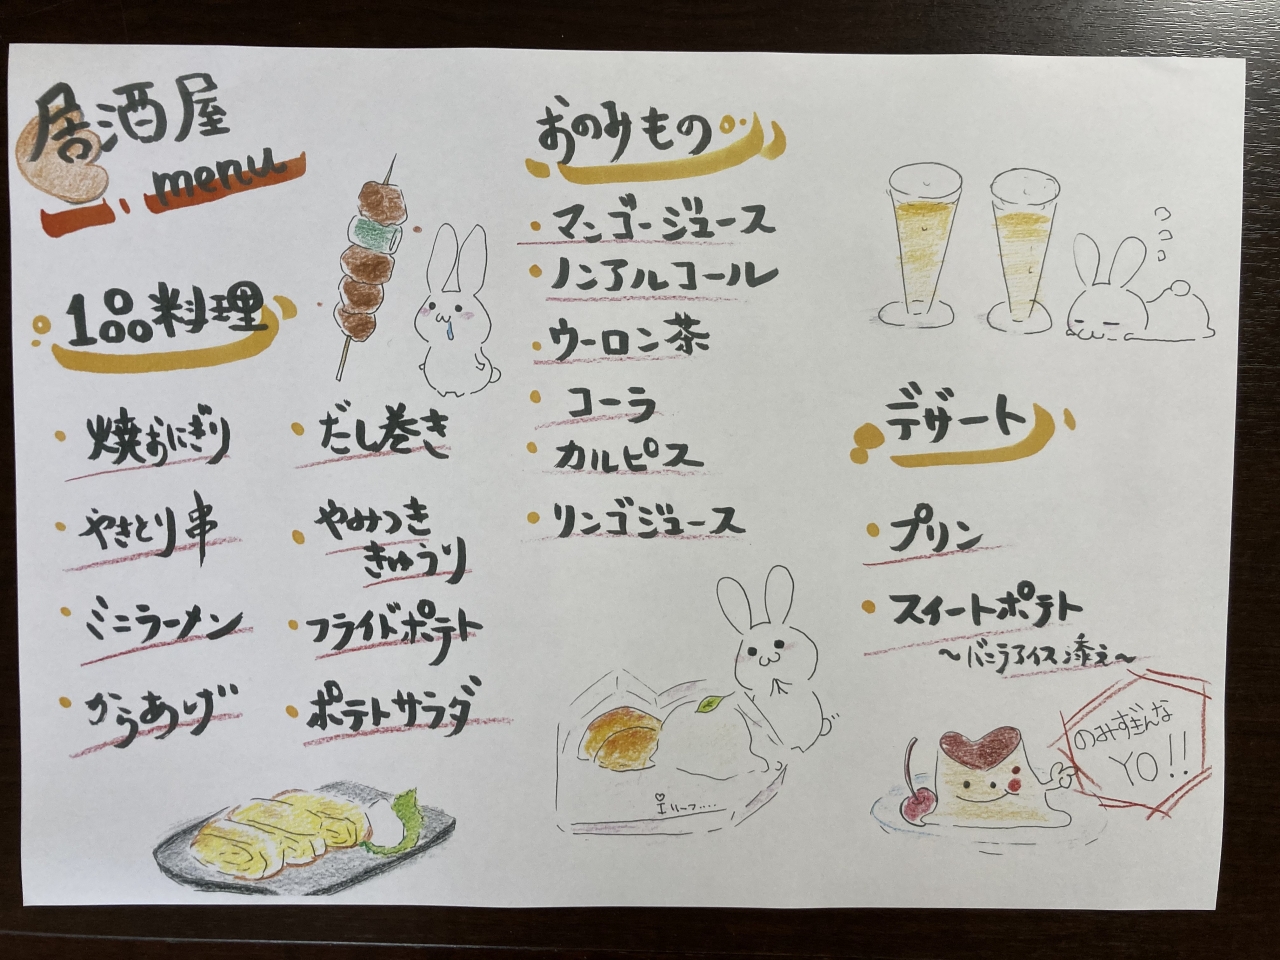 居酒屋
menu
1品料理
・焼おにぎり
・やきとり串
・ミニラーメン
・からあげ
・だし巻き
・やみつき
きゅうり
・フライドポテト
・ポテトサラダ
おのみもの
・マンゴージュース
・ノンアルコール
・ウーロン茶
・コーラ
・カルピス
・リンゴジュース
デザート
・プリン
・スイートポテト
～バニラアイス添え～
のみすぎんな
YO!!